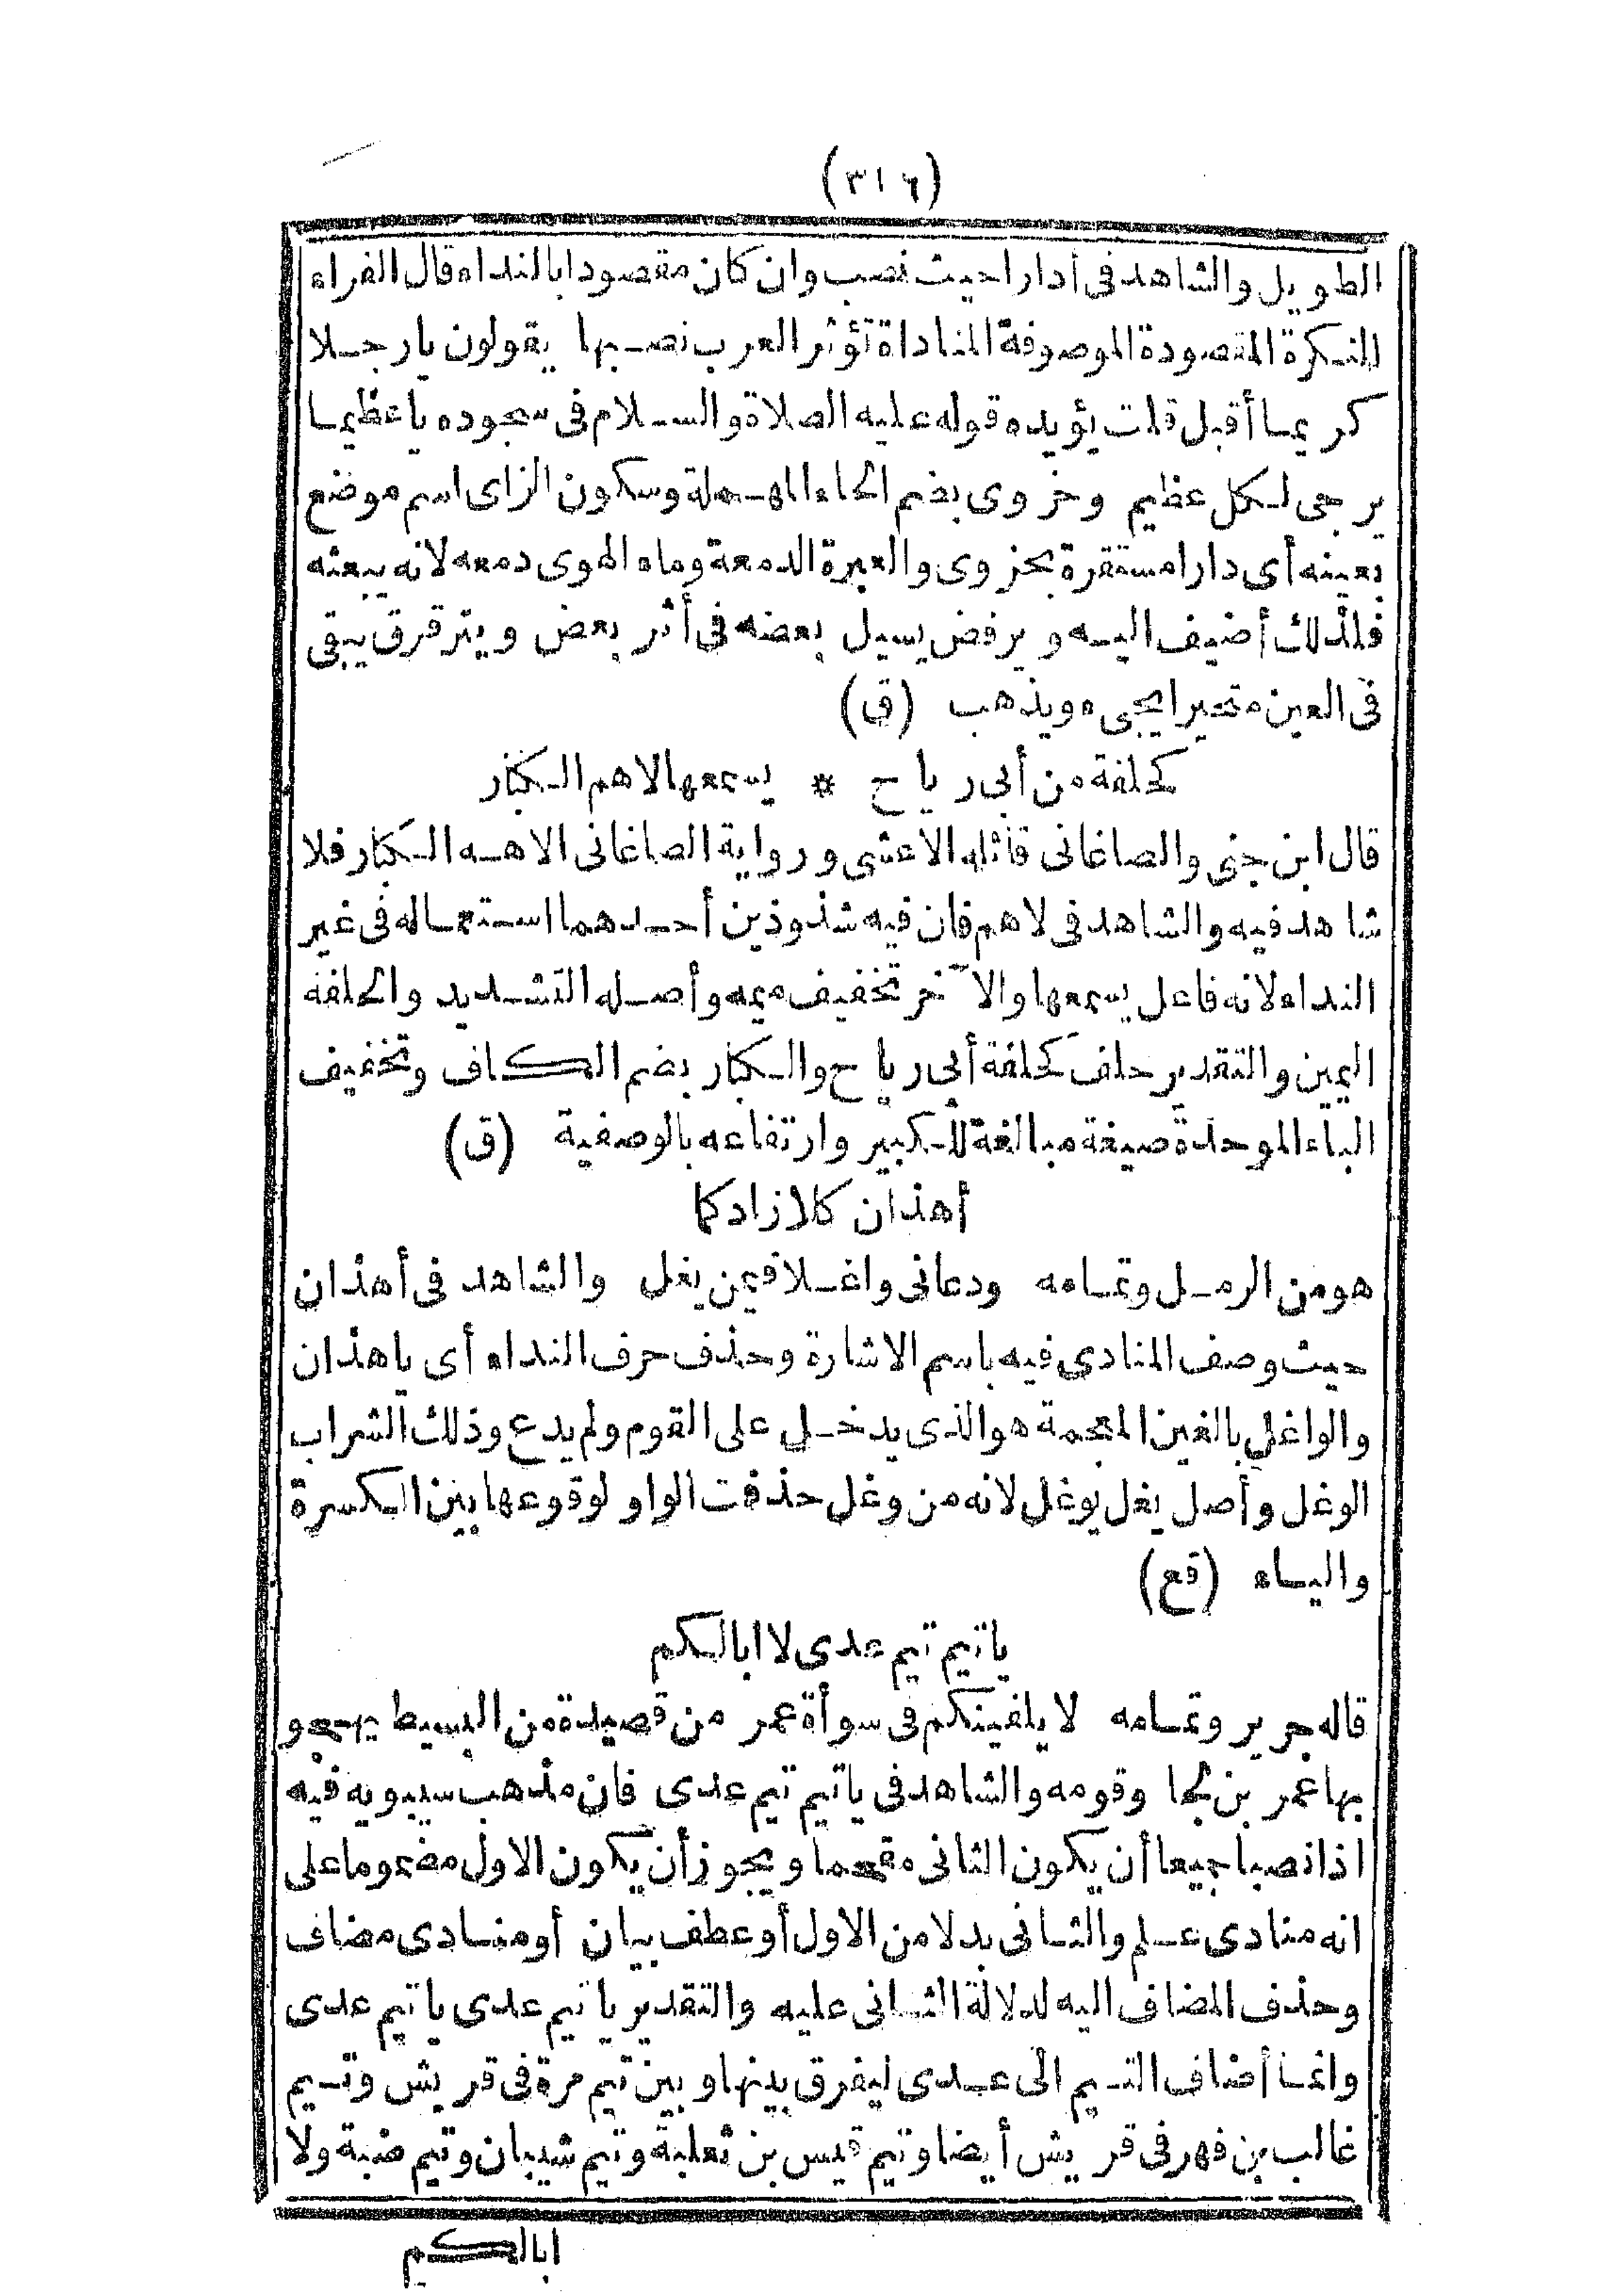 (٣١٦)
الطويل والشاهد فى أدارا حيث نصب وان كان مقصودا بالنداء قال الفراء
النكرة المقصودة الموصوفة المناداة تؤثر العرب نصبها يقولون يا رجلا
كريما أقبل قلت يؤيده قوله عليه الصلاة والسلام فى سجوده يا عظيما
يرجى لكل عظيم وحزوى بضم الحاء المهملة وسكون الزاى اسم موضع
بعينه أى دارا مستقرة بحزوى والعبرة الدمعة وماء الهوى دمعه لانه يبعثه
فلذلك أضيف اليه ويرفض يسيل بعضه فى أثر بعض ويترقرق يبقى
فى العين متحيرا يجىء ويذهب (ق)
كحلفة من أبى رياح * يسمعها لاهم الكبار
قال ابن جنى والصاغانى قائله الاعشى ورواية الصاغانى الاهه الكبار فلا
شاهد فيه والشاهد فى لاهم فان فيه شذوذين أحدهما استعماله فى غير
النداء لانه فاعل يسمعها والآخر تخفيف ميمه وأصله التشديد والحلفة
اليمين والتقدير حلف كحلفة أبى رياح والكبار بضم الكاف وتخفيف
الباء الموحدة صيغة مبالغة للكبير وارتفاعه بالوصفية (ق)
أهذان كلا زادكما
هو من الرمل وتمامه ودعانى واغلا فيمن يغل والشاهد فى أهذان
حيث وصف المنادى فيه باسم الاشارة وحذف حرف النداء أى يا هذان
والواغل بالغين المعجمة هو الذى يدخل على القوم ولم يدع وذلك الشراب
الوغل وأصل يغل يوغل لانه من وغل حذفت الواو لوقوعها بين الكسرة
والياء (قع)
يا تيم تيم عدى لا ابالكم
قاله جرير وتمامه لا يلفينكم فى سوأة عمر من قصيدة من البسيط يهجو
بها عمر بن لجا وقومه والشاهد فى يا تيم تيم عدى فان مذهب سيبويه فيه
اذا نصبا جميعا أن يكون الثانى مقحما ويجوز أن يكون الاول مضموما على
انه منادى علم والثانى بدلا من الاول أو عطف بيان أو منادى مضاف
وحذف المضاف اليه لدلالة الثانى عليه والتقدير يا تيم عدى يا تيم عدى
وانما أضاف التيم الى عدى ليفرق بينها وبين تيم مرة فى قريش وتيم
غالب بن فهر فى قريش أيضا وتيم قيس بن ثعلبة وتيم شيبان وتيم ضبة ولا
ابالكم